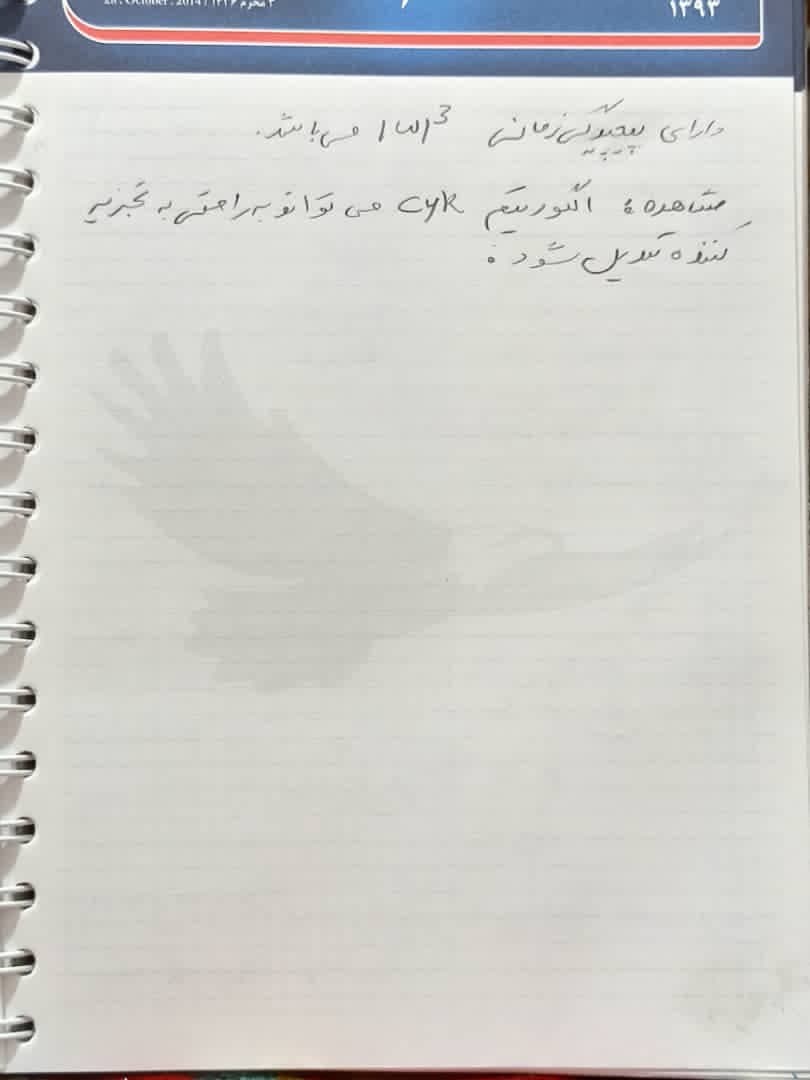 28 . October . 2014 / ۱۴۳۶ محرم ۴
۱۳۹۳
دارای پیچیدگی زمانی |ω|³ می باشد.
مشاهده: الگوریتم CYK می تواند به راحتی به تجزیه
کننده تبدیل شود: